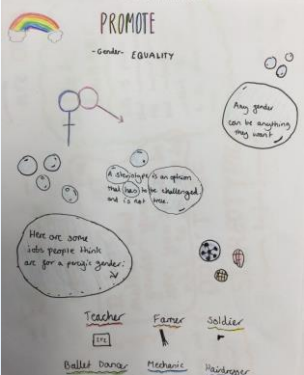 PROMOTE
-Gender- EQUALITY
Any gender
can be anything
they want
A steriotype is an opinion
that has to be challenged
and is not true.
Here are some
jobs people think
are for a pacific gender:
Teacher Famer Soldier
Ballet Dancer Mechanic Hairdresser